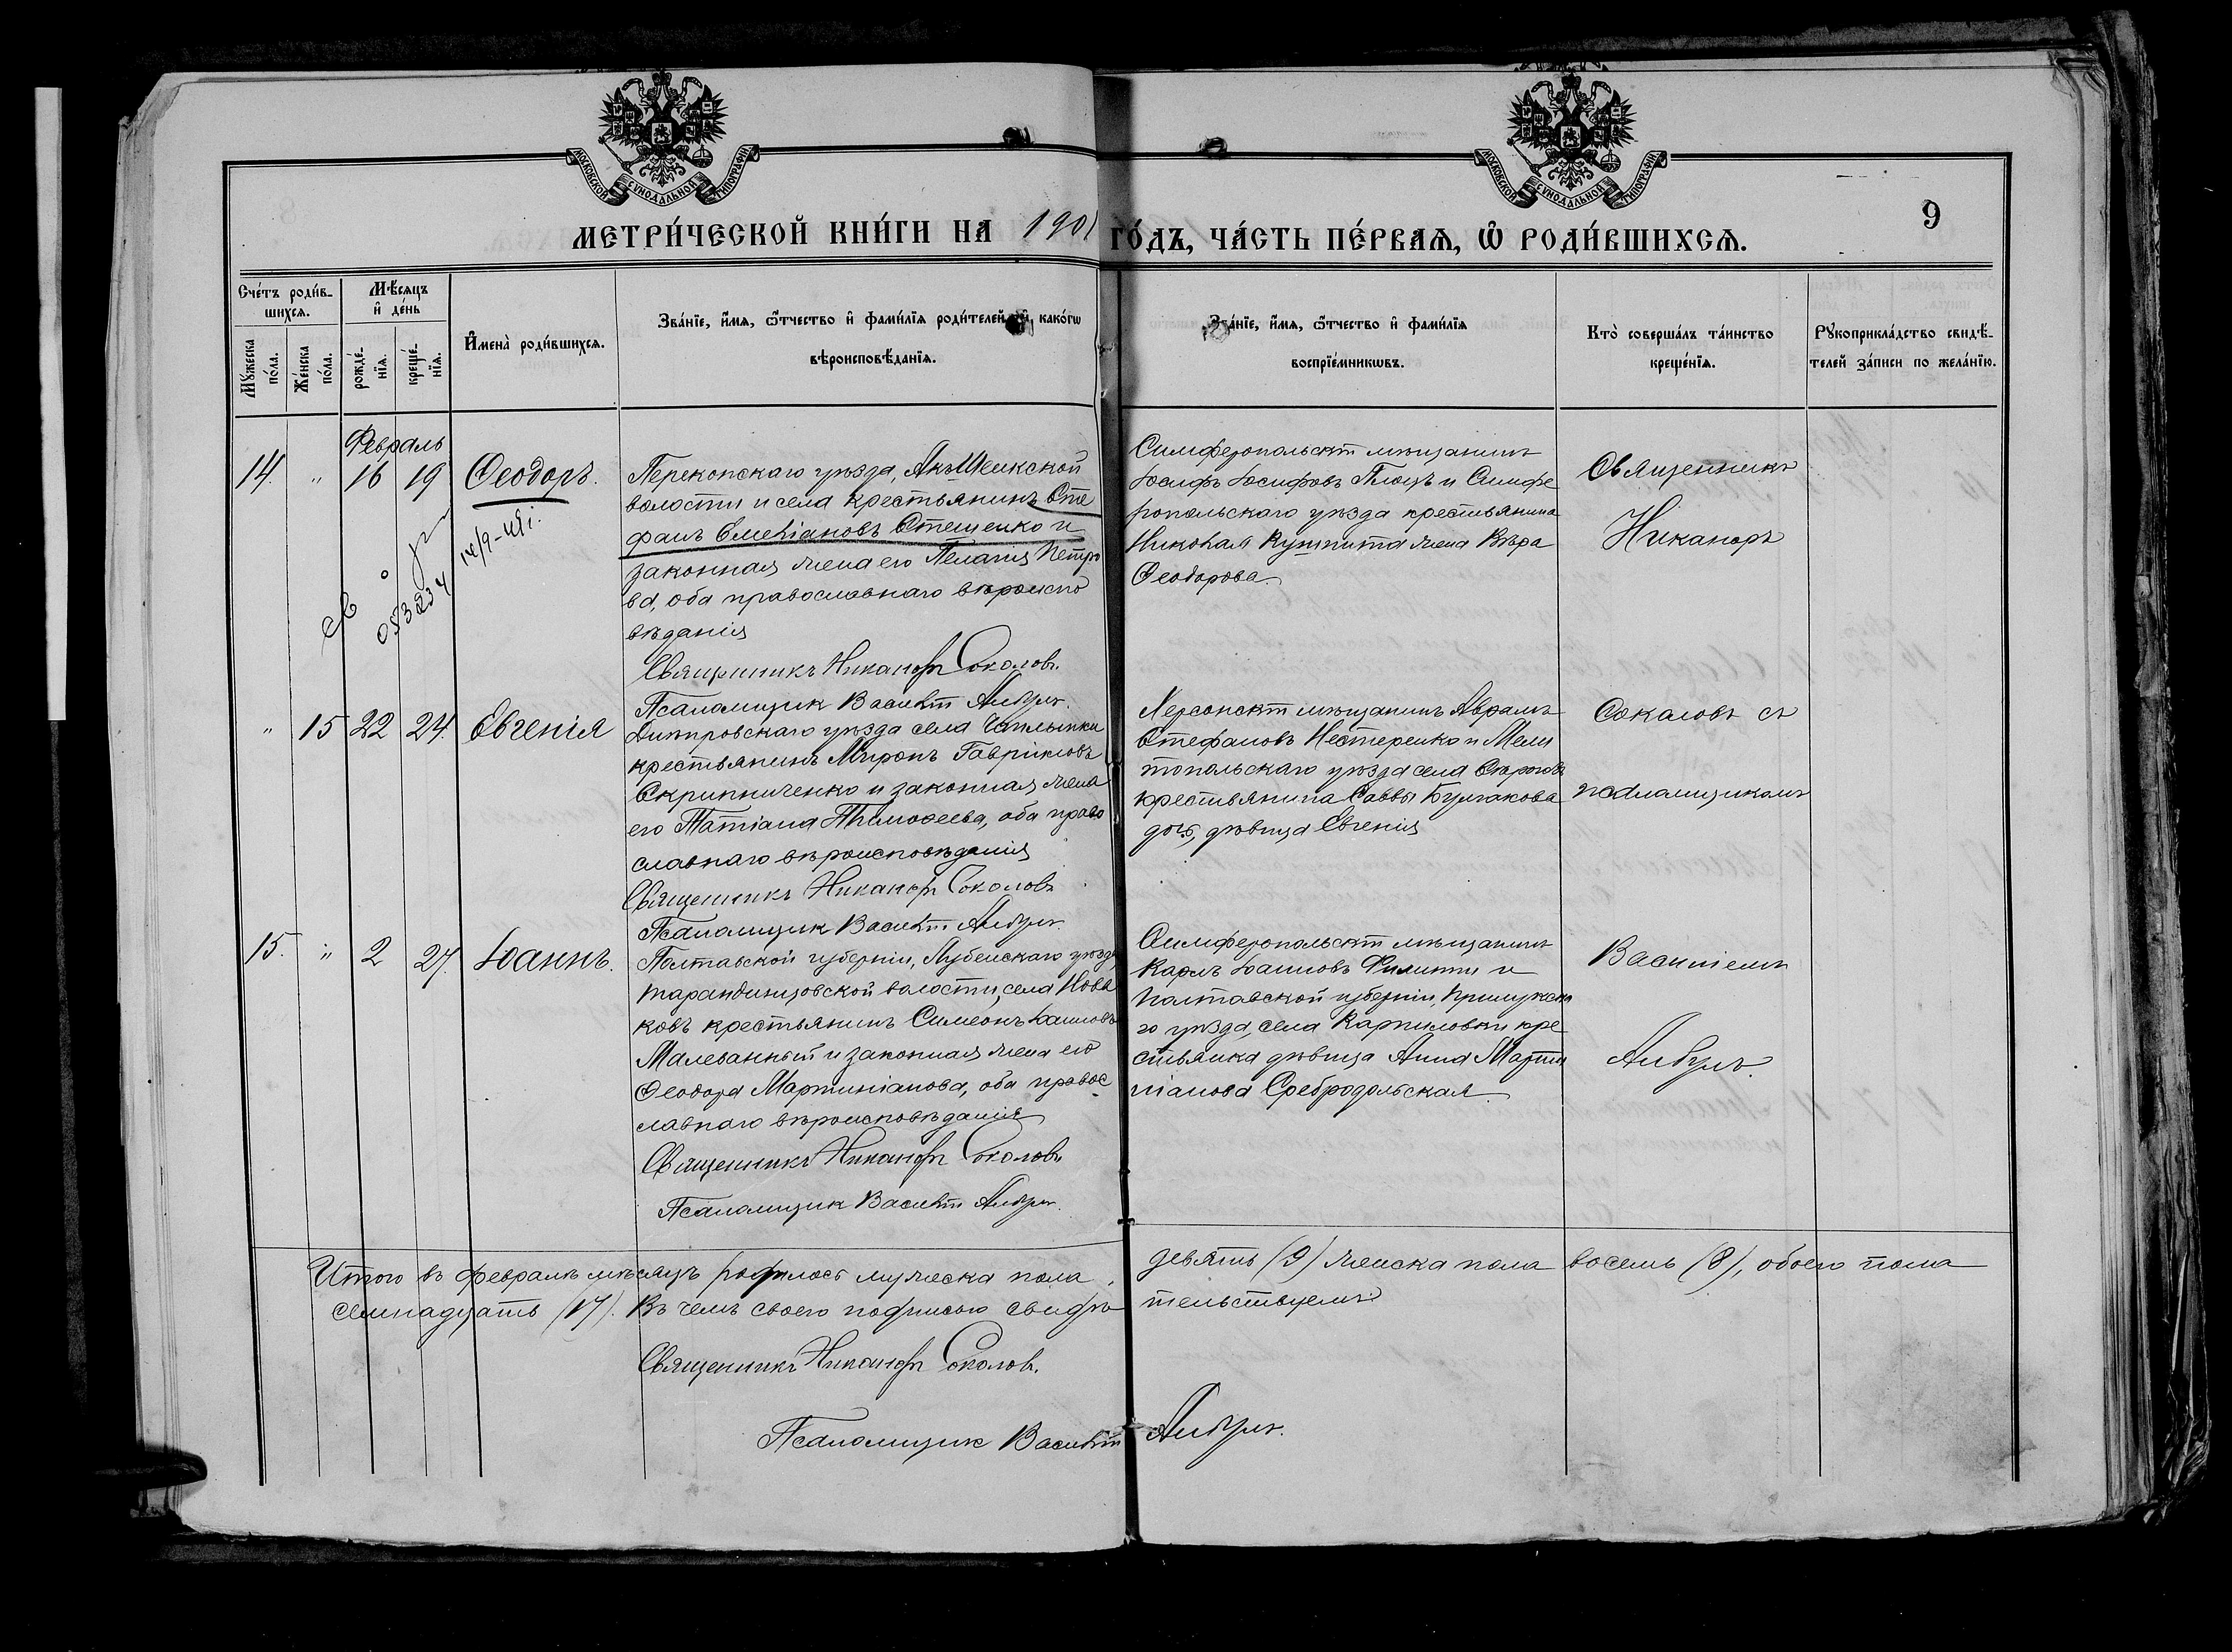 МОСКОВСКОЙ СѴНОДАЛЬНОЙ ТИПОГРАФІИ
МОСКОВСКОЙ СѴНОДАЛЬНОЙ ТИПОГРАФІИ
9
МЕТРИ́ЧЕСКОЙ КНИ́ГИ НА 1901 ГО́ДЪ, ЧА́СТЬ ПЕ́РВАѦ, Ѡ҆ РОДИ́ВШИХСѦ.
Сче́тъ роди́в-
шихсѧ.
Мꙋ́жеска
по́ла.
Же́нска
по́ла.
Мѣ́сѧцъ
и҆ де́нь
рожде́-
нїѧ.
креще́-
нїѧ.
И҆мена̀ роди́вшихсѧ.
Зва́нїе, и҆́мѧ, ѻ҆́тчество и҆ фами́лїѧ роди́телей, и҆ како́гѡ
вѣроисповѣ́данїѧ.
Зва́нїе, и҆́мѧ, ѻ҆́тчество и҆ фами́лїѧ
воспрїе́мникѡвъ.
Кто̀ соверша́лъ та́инство
креще́нїѧ.
Рꙋкоприкла́дство свидѣ́-
телей за́писи по жела́нїю.
Февраль
14. " 16 19 Ѳеодоръ.
Перекопскаго уѣзда, Акъ-Шеикской
волости и села крестьянинъ Сте
фанъ Емеліановъ Стещенко и
законная жена его Пелагія Петро
ва, оба православнаго вѣроиспо
вѣданія
Священникъ Никаноръ Соколовъ.
Псаломщик Василій
Симферопольскій мѣщанинъ
Іосифъ Іосифовъ и Симфе
ропольскаго уѣзда крестьянина
Николая жена Вѣра
Ѳеодорова.
Священникъ
Никаноръ
св
053234
" 15 22 24. Евгенія
Днѣпровскаго уѣзда села Чаплынки
крестьянинъ Миронъ Гавріиловъ
Скрипниченко и законная жена
его Татіана Тимоѳеева, оба право
славнаго вѣроисповѣданія
Священникъ Никаноръ Соколовъ
Псаломщик Василій
Херсонскій мѣщанинъ Аврамъ
Стефановъ Нестеренко и Мели
топольскаго уѣзда села
крестьянина Саввы Булгакова
дочь, дѣвица Евгенія
Соколовъ съ
псаломщикомъ
15. " 2 27. Іоаннъ.
Полтавской губерніи, Лубенскаго уѣзда
Тарандинцовской волости, села Нова
ковъ крестьянинъ Симеонъ Іоанновъ
Малеванный и законная жена его
Ѳеодора Мартиніанова, оба правос
лавнаго вѣроисповѣданія
Священникъ Никаноръ Соколовъ
Псаломщик Василій
Симферопольскій мѣщанинъ
Карлъ Іоанновъ Филиппи и
Полтавской губерніи, Прилукска
го уѣзда, села Карпиловки кре
стьянка дѣвица Анна Марти
ніанова Сребродольская.
Василіемъ
Итого въ февралѣ мѣсяцѣ родилось мужеска пола девять (9) женска пола восемь (8), обоего пола
семнадцать (17). Въ чемъ своего подписью свидѣтельствуемъ:
Священникъ Никаноръ Соколовъ.
Псаломщик Василій